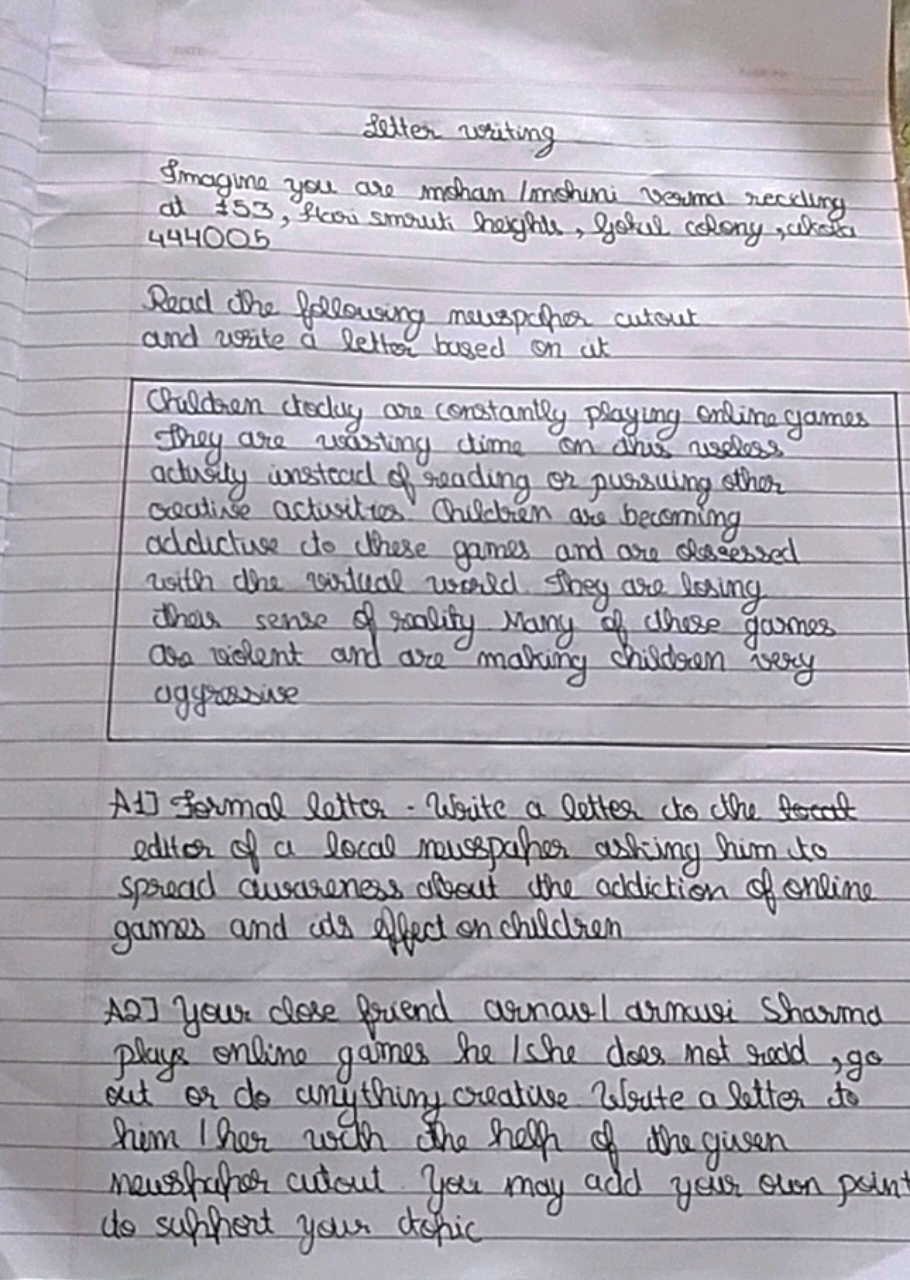 Letter writing
Imagine you are mohan / mohini verma reciding
at 153, Hari smruti heights, Gokul colony, akola
444005
Read the following newspaper cutout
and write a letter based on it
Children today are constantly playing online games
They are wasting time on this useless
activity instead of reading or pursuing other
creative activities. Children are becoming
addictive to these games and are obsessed
with the virtual world They are losing
their sense of reality Many of these games
are violent and are making children very
aggressive
A1] Formal letter - Write a letter to the local
editor of a local newspaper asking him to
spread awareness about the addiction of online
games and its effect on children
A2] Your close friend arnav / Sharma
plays online games he / she does not read, go
out or do anything creative Write a letter to
him / her with the help of the given
newspaper cutout. You may add your own point
to support your topic